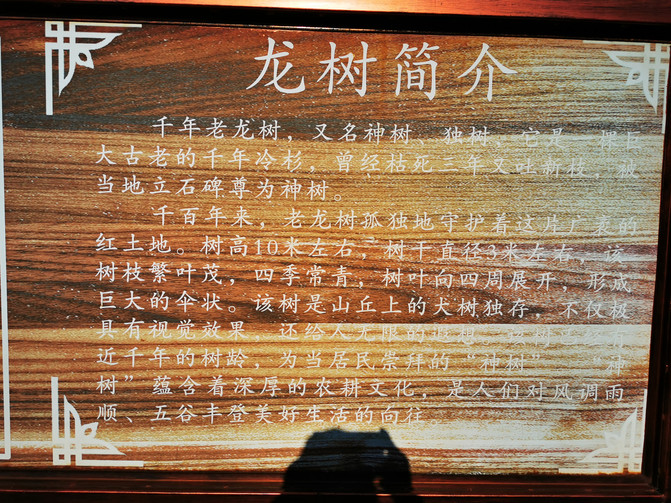 龙树简介
千年老龙树，又名神树、独树，它是一棵巨
大古老的千年冷杉，曾经枯死三年又吐新枝，被
当地立石碑尊为神树。
千百年来，老龙树孤独地守护着这片广袤的
红土地。树高10米左右，树干直径3米左右，该
树枝繁叶茂，四季常青，树叶向四周展开，形成
巨大的伞状。该树是山丘上的大树独存，不仅极
具有视觉效果，还给人无限的遐想。该树
近千年的树龄，为当居民崇拜的“神树”
神
树”蕴含着深厚的农耕文化，是人们对风调雨
顺、五谷丰登美好生活的向往